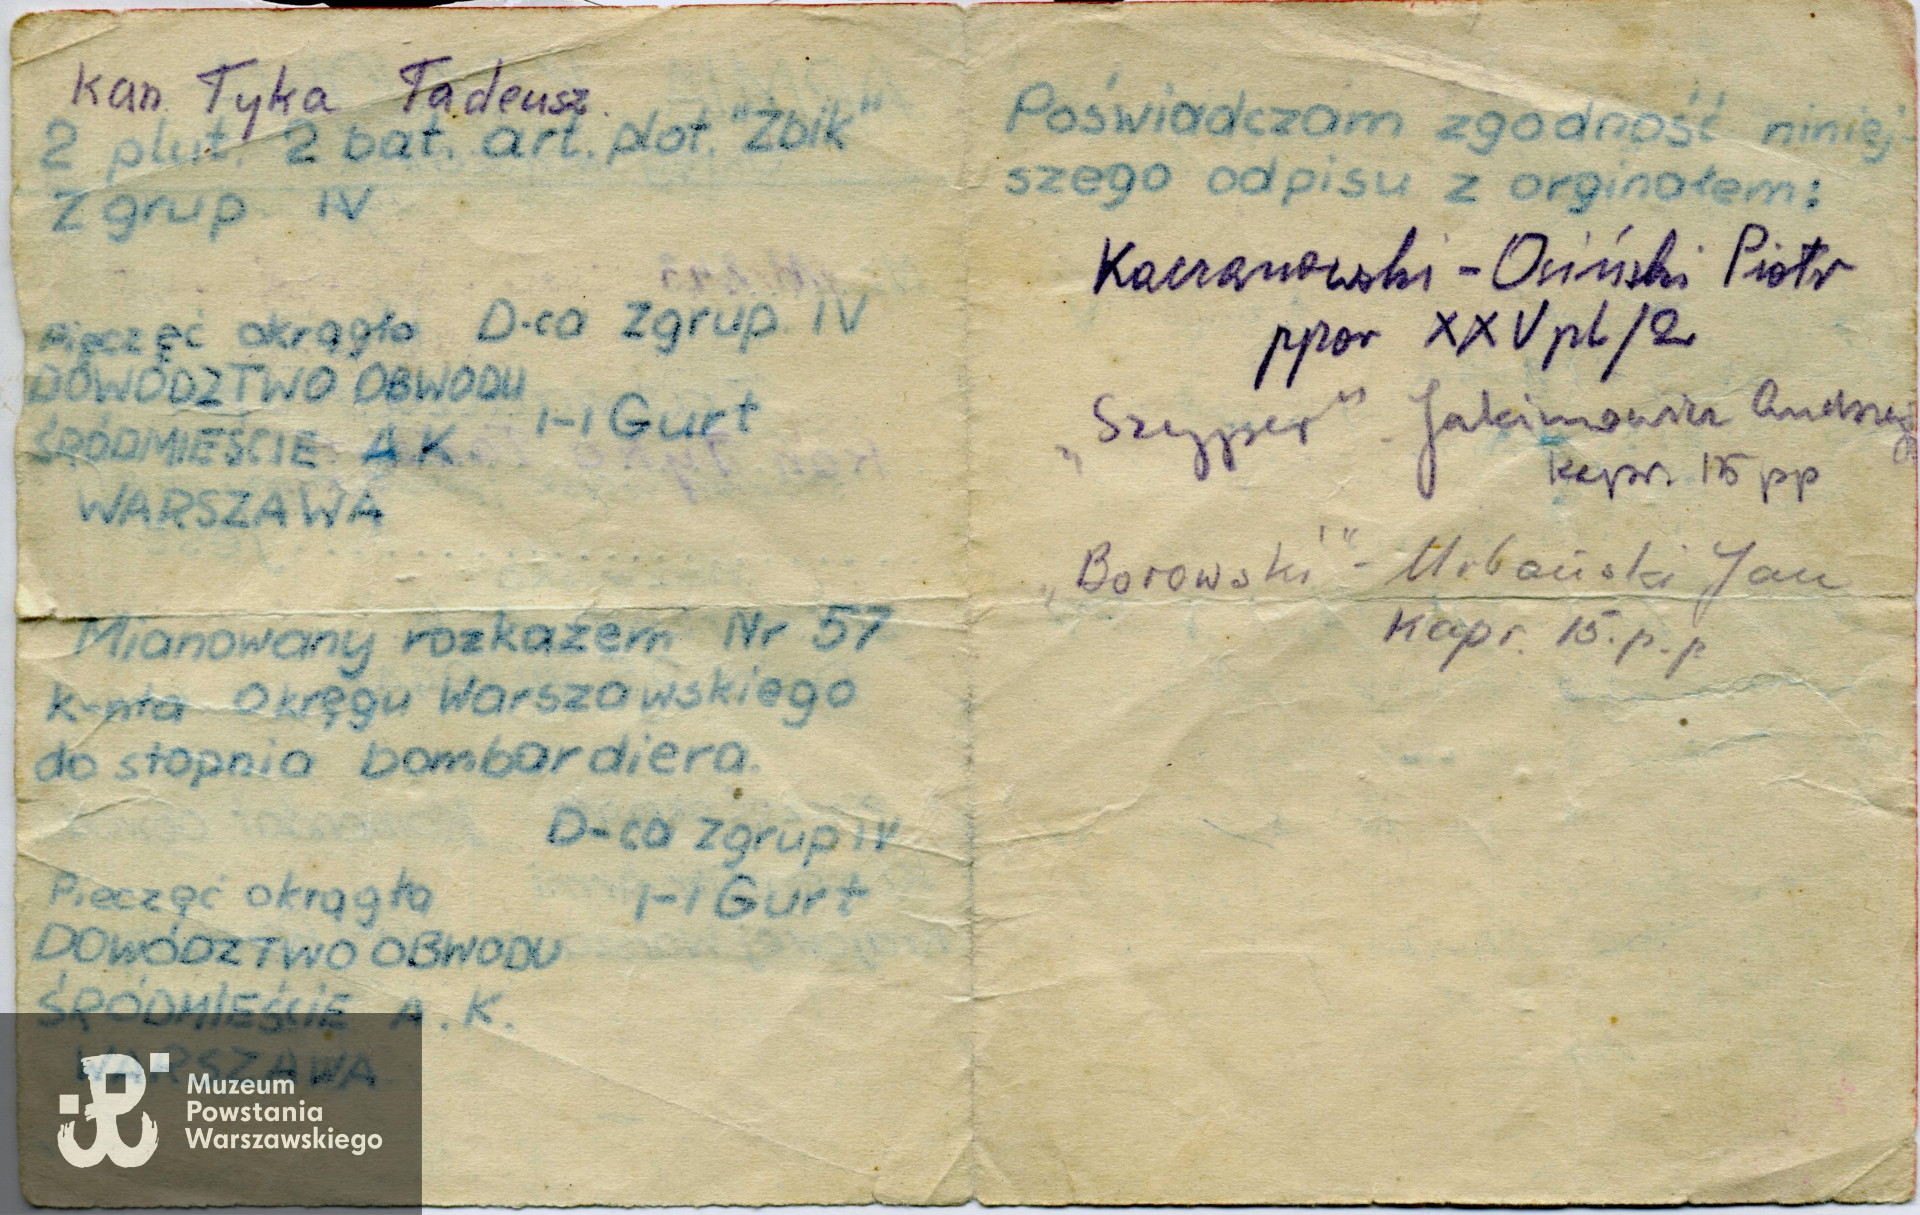 Kan. Tyka Tadeusz.
2 plut. 2 bat. art. plot. "Żbik"
Zgrup IV
Pieczęć okrągła D-ca Zgrup. IV
DOWÓDZTWO OBWODU
ŚRÓDMIEŚCIE A K I-I Gurt
WARSZAWA
Mianowany rozkazem Nr 57
k-nta Okręgu Warszawskiego
do stopnia bombardiera.
D-ca Zgrup IV
Pieczęć okrągła I-I Gurt
DOWÓDZTWO OBWODU
ŚRÓDMIEŚCIE A.K.
WARSZAWA
Poświadczam zgodność niniej-
szego odpisu z orginałem:
Kaczanowski - Osiński Piotr
ppor XXV pl/2
„Szyper" - Jakimowicz Andrzej
kapr. 15 pp
„Borowski" - Urbański Jan
Kapr. 15.p.p
Muzeum
Powstania
Warszawskiego